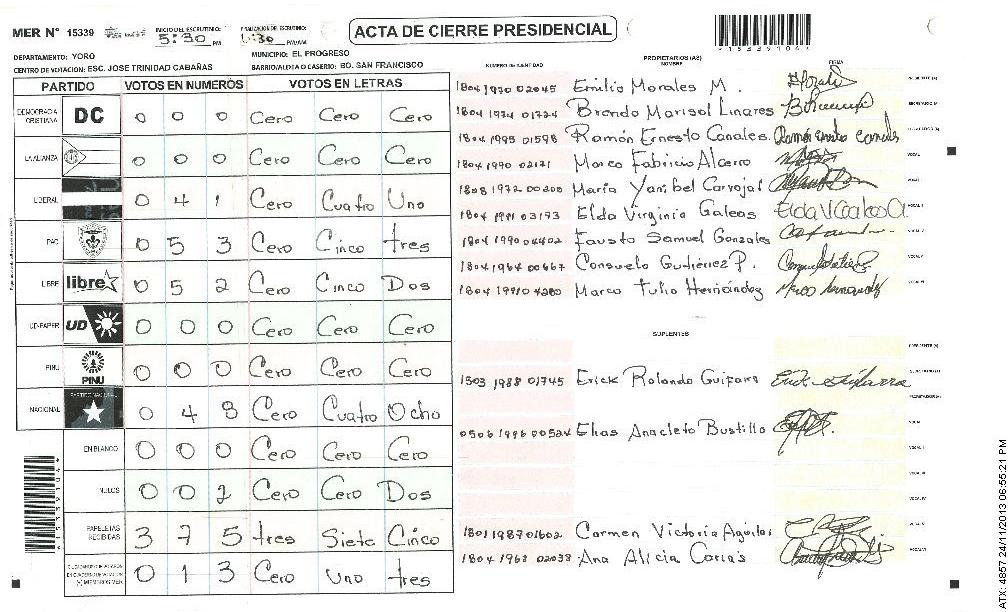 MER Nº 15339
INICIO DEL ESCRUTINIO: 5:30 PM
FINALIZACION DEL ESCRUTINIO: 6:30 PM/AM
ACTA DE CIERRE PRESIDENCIAL
DEPARTAMENTO: YORO
MUNICIPIO: EL PROGRESO
CENTRO DE VOTACION: ESC. JOSE TRINIDAD CABAÑAS
BARRIO/ALDEA O CASERIO: BO. SAN FRANCISCO
PARTIDO VOTOS EN NUMEROS VOTOS EN LETRAS
DEMOCRACIA CRISTIANA DC 0 0 0 Cero Cero Cero
LA ALIANZA 0 0 0 Cero Cero Cero
LIBERAL 0 4 1 Cero Cuatro Uno
PAC 0 5 3 Cero Cinco tres
LIBRE libre 0 5 2 Cero Cinco Dos
UD-FAPER UD 0 0 0 Cero Cero Cero
PINU PINU 0 0 0 Cero Cero Cero
NACIONAL PARTIDO NACIONAL 0 4 8 Cero Cuatro Ocho
EN BLANCO 0 0 0 Cero Cero Cero
NULOS 0 0 2 Cero Cero Dos
PAPELETAS RECIBIDAS 3 7 5 tres Siete Cinco
0 1 3 Cero Uno tres
NUMERO DE IDENTIDAD PROPIETARIOS (AS) NOMBRE FIRMA
1804 1970 02045 Emilio Morales M.
1804 1974 01724 Brenda Marisol Linares
1804 1995 01598 Ramón Ernesto Canales
1804 1990 02171 Marco Fabricio Alcerro
1808 1972 00208 María Yanibel Carvajal
1804 1991 03173 Elda Virginia Galeas
1804 1990 04402 Fausto Samuel Gonzales
1804 1964 00667 Consuelo Gutiérrez P.
1804 1991 04280 Marco Tulio Hernández
SUPLENTES
1503 1988 01745 Erick Rolando Guifarro
0506 1996 00524 Elias Anacleto Bustillo
1801 1987 01602 Carmen Victoria Aguilar
1804 1963 02038 Ana Alicia Carías
ATX: 4857 24/11/2013 06:55:21 PM